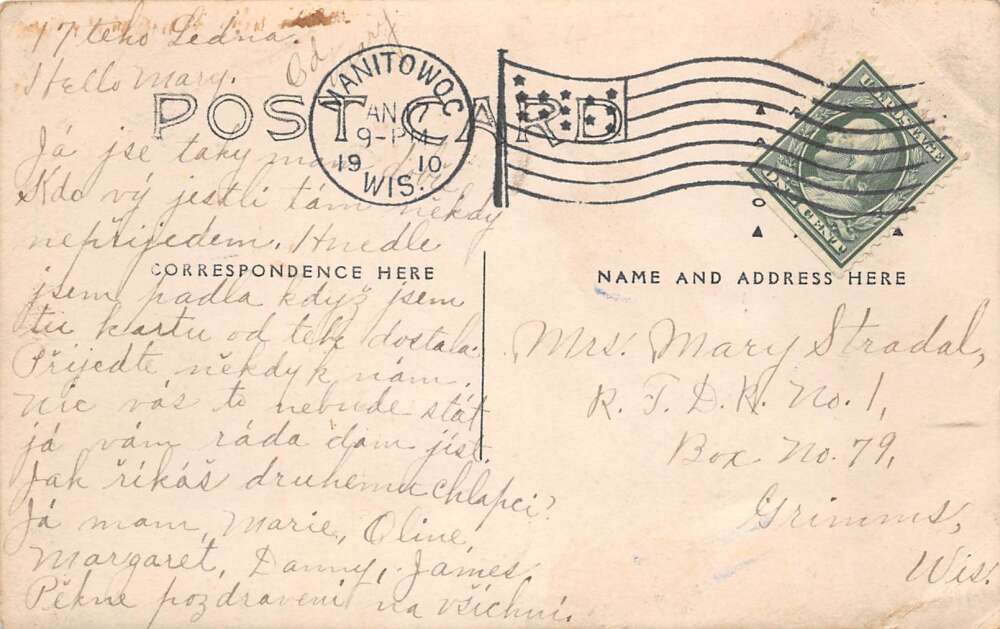 17 teho Ledna.
Hello Mary.
POST CARD
MANITOWOC
JAN 17
9-PM
1910
WIS.
Já jse taky mám
Kdo vý jestli tám někdy
nepřijedem. Hnedle
CORRESPONDENCE HERE
jsem padla když jsem
tu kartu od tebe dostala.
Přijedte někdy k nám.
Nic vás to nebude stát
já vám ráda dám jíst.
Jak říkáš druhemu chlapci?
Já mam, Marie, Oline,
Margaret, Danny, James.
Pěkne pozdraveni na všichni.
NAME AND ADDRESS HERE
Mrs. Mary Stradal,
R. F. D. R. No. 1,
Box No. 79,
Grimms,
Wis.